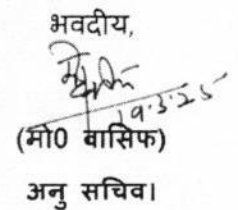 भवदीय,
19.3.25
(मो0 वासिफ)
अनु सचिव।